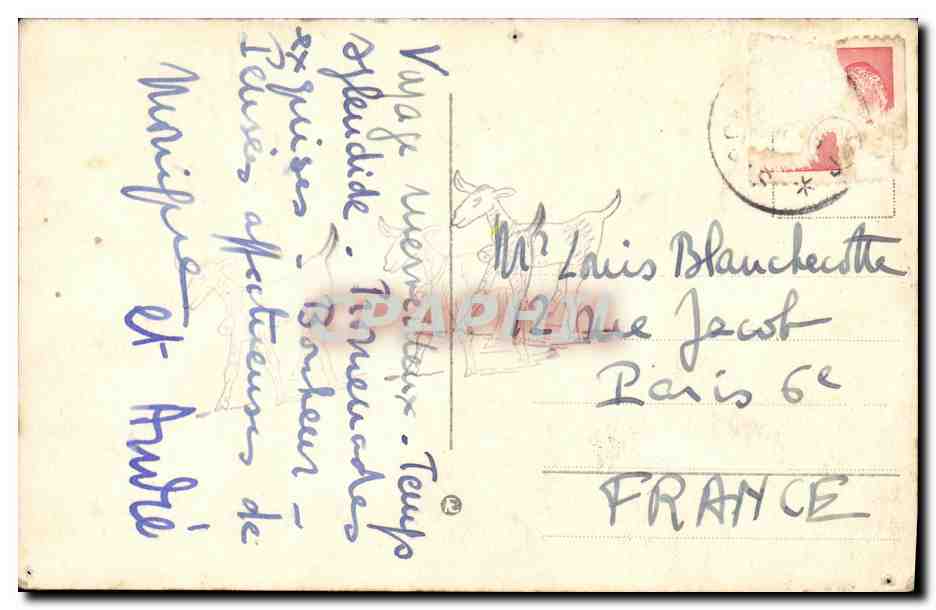 Voyage merveilleux. Temps
splendide. Promenades
exquises. Bonheur -
Pensées affectueuses de
Monique et André
Mr Louis Blanchecotte
12 rue Jacob
Paris 6e
FRANCE
CPAPHIL